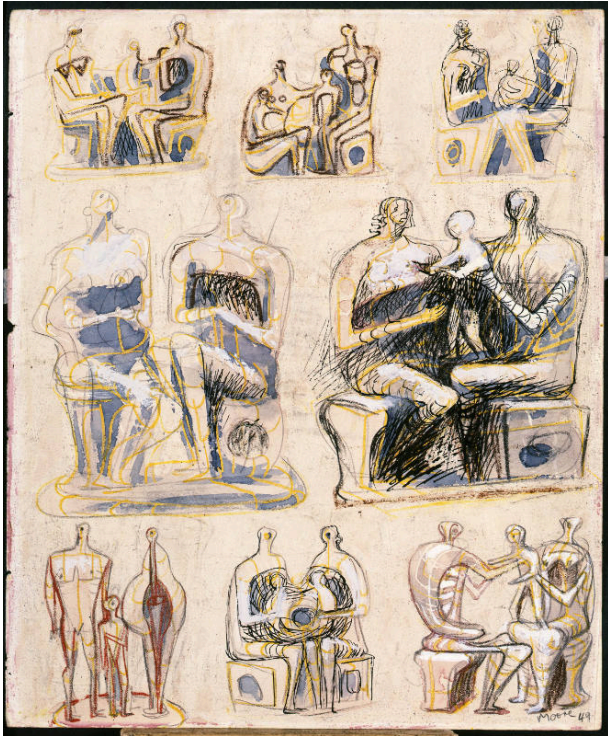 Moore 49.